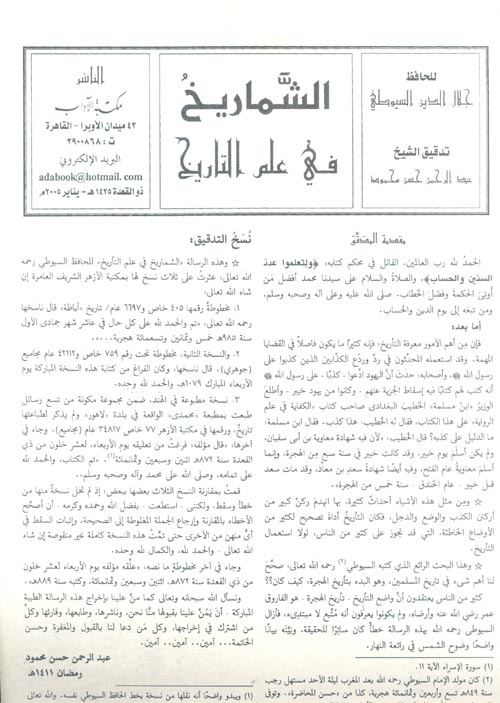 للحافظ
جلال الدين السيوطي
تدقيق الشيخ
عبد الرحمن حسن محمود
الشَّماريخُ
في علم التاريخ
الناشر
مكتبة الآداب
٤٢ ميدان الأوبرا - القاهرة
ت : ٣٩٠٠٨٦٨
البريد الإلكتروني
adabook@hotmail.com
ذو القعدة ١٤٢٥هـ - يناير ٢٠٠٥م
مقدمة المدقق
الحمدُ لله رب العالمين، القائل في محكم كتابه: ﴿ولتعلموا عدد
السنين والحساب﴾، والصلاةُ والسلام على سيدنا محمد أفضل مَن
أوتيَ الحكمةَ وفصْلَ الخطاب. صلى الله عليه وعلى آله وصحبه وسلم،
ومن تبعه إلى يوم الدين والحساب.
أما بعد:
فإن مِن أهم الأمور معرفةَ التأريخ، فإنه كثيرًا ما يكون فاصلاً في القضايا
المهمة. وقد استعمله المحدِّثون في ردِّ وردْع الكذَّابين الذين كذبوا على
رسول الله ﷺ وأصحابه، حدثَ أنَّ اليهود ادَّعوا - كذبًا - على رسول الله ﷺ
أنه كتب لهم كتابًا فيه إسقاط الجزية عنهم - وكانوا من يهود خيبر - وأطلع
الوزيرُ «ابنُ مسلمة» الخطيبَ البغدادي صاحب كتاب «الكفاية في علم
الرواية» على هذا الكتاب. فقال له الخطيب: هذا كذب. فقال ابن مسلمة:
ما الدليل على كذبه؟ قال الخطيب: «لأن فيه شهادة معاوية بن أبي سفيان،
ولم يكن أسلم يوم خيبر، وقد كانت خيبر في سنة سبع من الهجرة، وإنما
أسلمَ معاويةُ عام الفتح، وفيه أيضًا شهادةُ سعدِ بن معاذ، وقد مات سعد
قبل خيبر - عام الخندق - سنة خمس من الهجرة».
☆ ومِن مثل هذه الأشياء أحداثٌ كثيرة، بها انهدمَ ركنٌ كبير من
أركان الكذب والوضع والدجل. فكان التأريخُ أداةَ تصحيح لكثير من
الأوضاع الخاطئة، التي قد تجوز على كثير من الناس، لولا استعمال
التأريخ.
☆ وهذا البحث الرائع الذي كتبه السيوطي (٢) رحمه الله تعالى: صحَّح
لنا أهم شيء في تاريخ المسلمين، وهو البدء بتأريخ الهجرة، كيف كان؟؟
كثير من الناس يعتقدون أنَّ واضع التأريخ - تأريخ الهجرة - هو الفاروق
عمر رضي الله عنه وأرضاه، ولم يكونوا يعرفون أنه مُتَّبِع لا مبتدِيء، فأزال
السيوطي رحمه الله بهذه الرسالة خطأً كان ساترًا للحقيقة، وبيَّنه بيانًا
واضحًا وضوح الشمس في رائعة النهار.
(١) سورة الإسراء الآية ١١.
(٢) كان مولد الإمام السيوطي رحمه الله بعد المغرب ليلة الأحد مستهل رجب
سنة ٨٤٩هـ تسع وأربعين وثمانمائة هجرية. كذا من «حسن المحاضرة». وتوفي
نُسَخُ التدقيق:
☆ وهذه الرسالة «الشماريخ في علم التأريخ» للحافظ السيوطي رحمه
الله تعالى، عثرتُ على ثلاث نسخ لها بمكتبة الأزهر الشريف العامرة إن
شاء الله تعالى:
١. مخطوطةٌ رقمها ٤٠٥ خاص و٦٦٩٧ عام/ تاريخ «أباظة»، قال ناسخها
رحمه الله تعالى: «تم والحمد لله على كل حال في عاشر شهر جمادى الأول
سنة ٩٨٥هـ خمس وثمانين وتسعمائة هجرية....
٢. والنسخة الثانية، مخطوطة تحت رقم ٧٥٩ خاص و٤٢١١٢ عام مجاميع
(جوهري). قال ناسخها، وكان الفراغ من كتابة هذه النسخة المباركة يوم
الأربعاء المبارك ١٠٧٩هـ، والحمد لله وحده.
٣. نسخة مطبوعة في الهند، ضمن مجموعة مكونة من تسع رسائل
طبعت بمطبعة «محمدي» الواقعة في بلدة «لاهور» ولم يذكر لطباعتها
تاريخ، ورقمها في مكتبة الأزهر ٧٧ خاص ٣٤٨١٧ عام (مجاميع)، وجاء في
آخرها: «قال مؤلفه: فرغتُ من تعليقه يوم الأربعاء، لعشر خلون من ذي
القعدة سنة ٨٧٢هـ اثنين وسبعين وثمانمائة(١)، «تم الكتاب، والحمد لله
على تمامه، وصلى الله على محمد وآله وصحبه وسلم»..
قمتُ بمقارنة النسخ الثلاث بعضها ببعض؛ إذ لم تخل نسخةٌ منها من
خطأ وسقط، ولكنني - استطعت - بفضل الله وحده وكرمه - أن أصحِّح
الأخطاء بالمقارنة وإرجاع الجملة المغلوطة إلى الصحيحة، وإثبات السقط في
أيٍّ منهن من الأخرى حتى تمَّتْ هذه النسخة كاملة غير منقوصة إن شاء
الله تعالى - والحمد لله، والكمال لله وحده.
وجاء في آخر مخطوطة ما نصه: «علَّقه مؤلفه يوم الأربعاء لعشر خلون
من ذي القعدة سنة ٨٧٢هـ، اثنين وسبعين وثمانمائة، وكتبه سنة ٨٨٩هـ».
ونسأل الله سبحانه وتعالى كما منَّ علينا بإخراج هذه الرسالة الطيبة
المباركة - أن يَمُنَّ علينا بقبولها منَّا نحن، وناشرها، وطابعها، وقارئها وكلَّ
من اشترك في إخراجها، وكلَّ مَن دعا لنا بالقبول والمغفرة وحسن
الخاتمة... آمين... آمين.. آمين.
عبد الرحمن حسن محمود
رمضان ١٤١١هـ
(١) ويبدو واضحًا أنه نقلها من نسخة بخط الحافظ السيوطي نفسه. والله تعالى